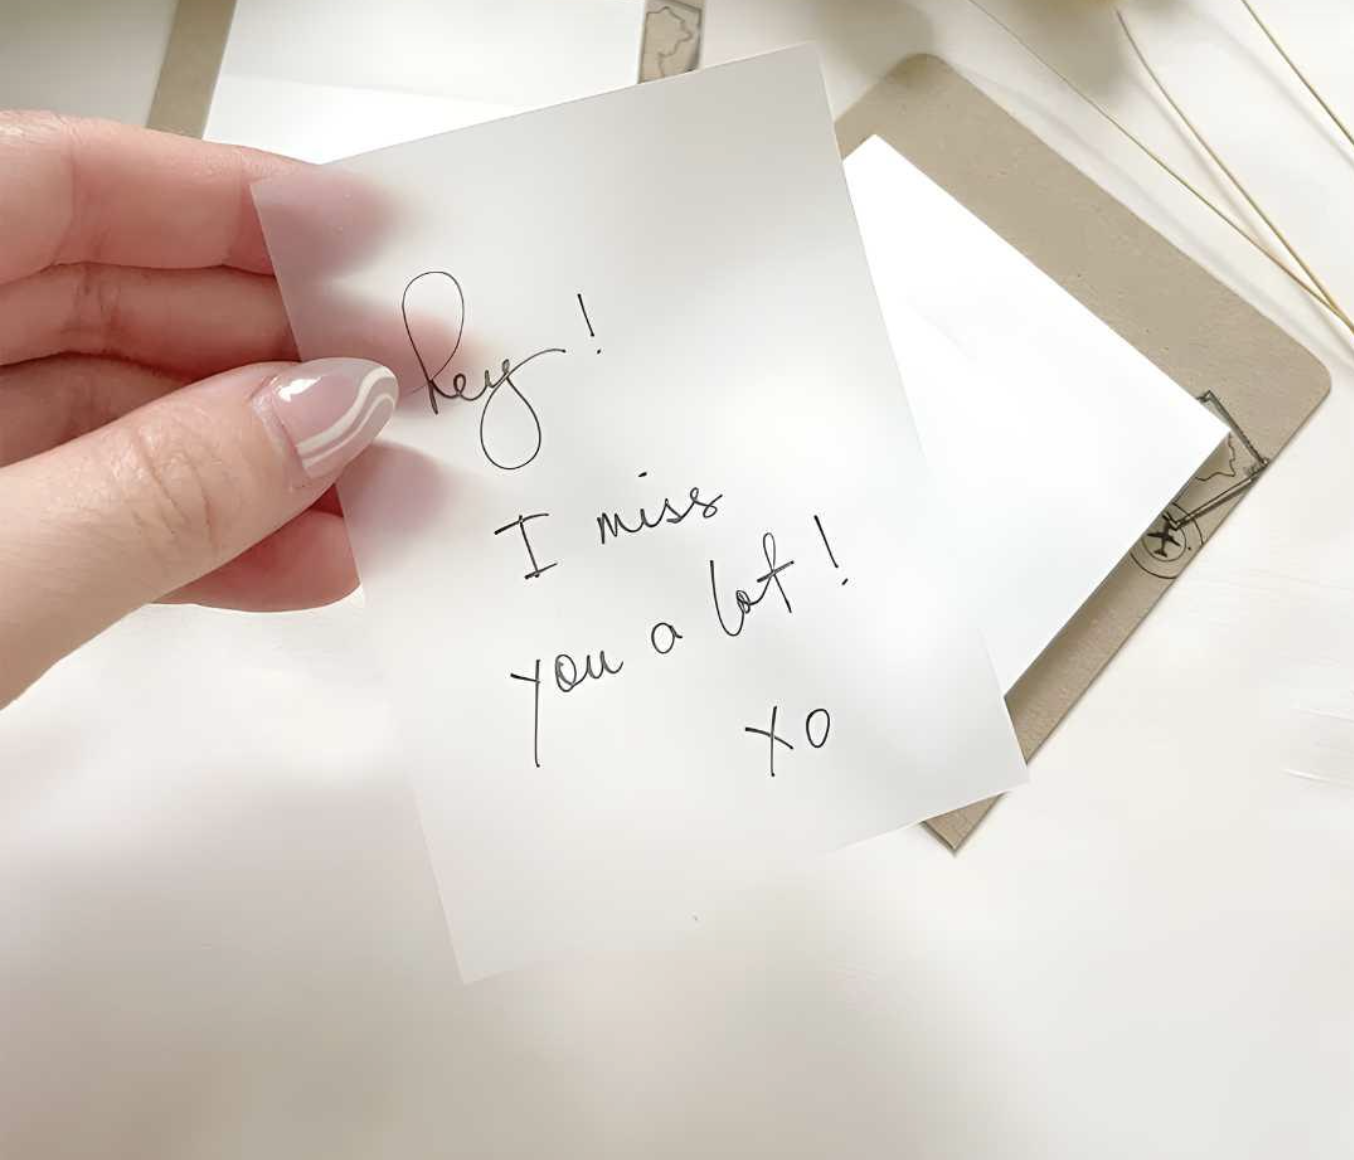 hey!
I miss
you a lot!
xo